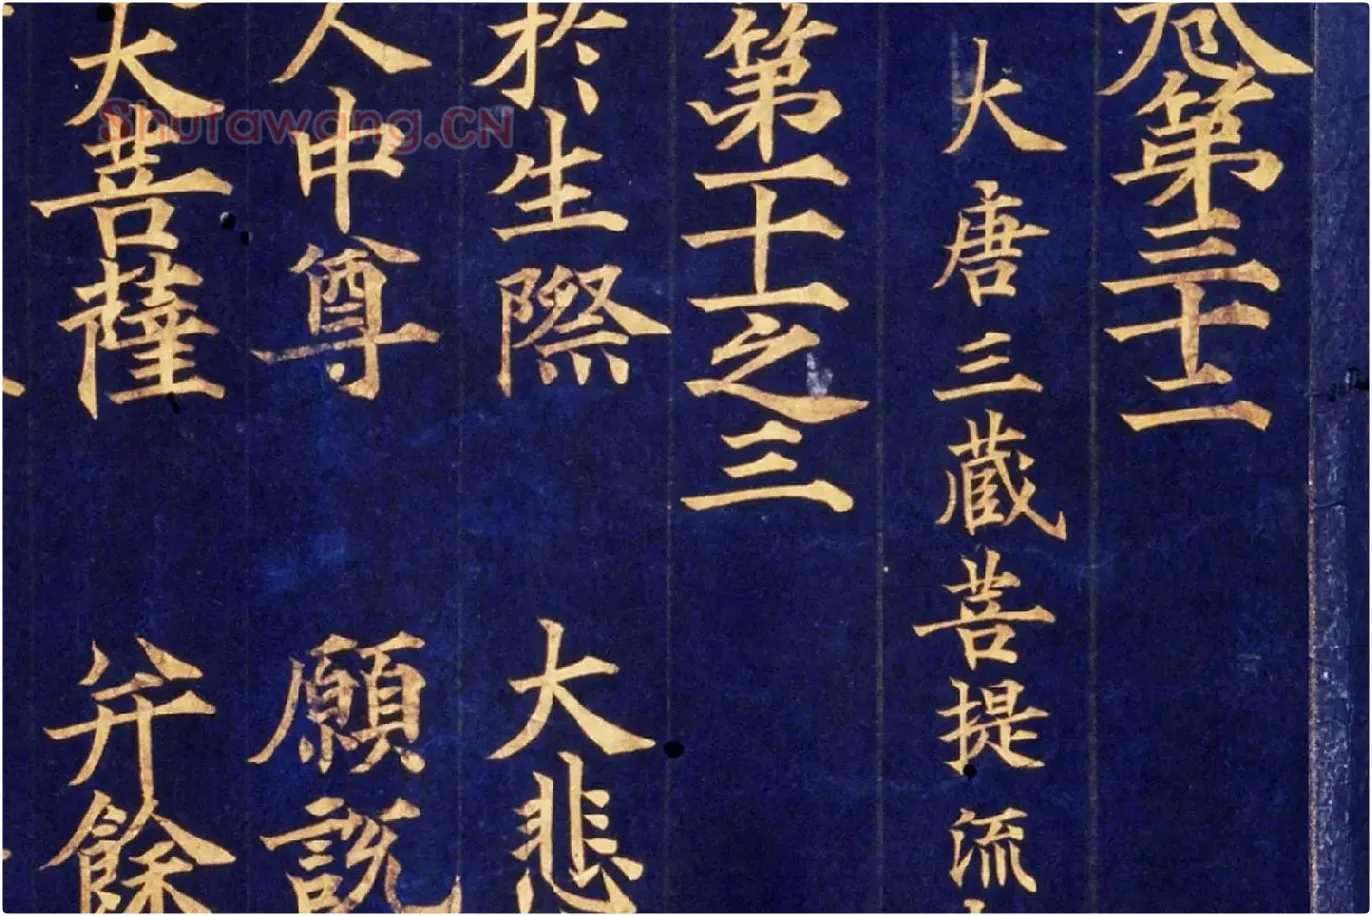 卷第三十二
大唐三藏菩提流
第十一之三
於生際 大悲
人中尊 願說
大菩薩 并餘
Shufawang.CN